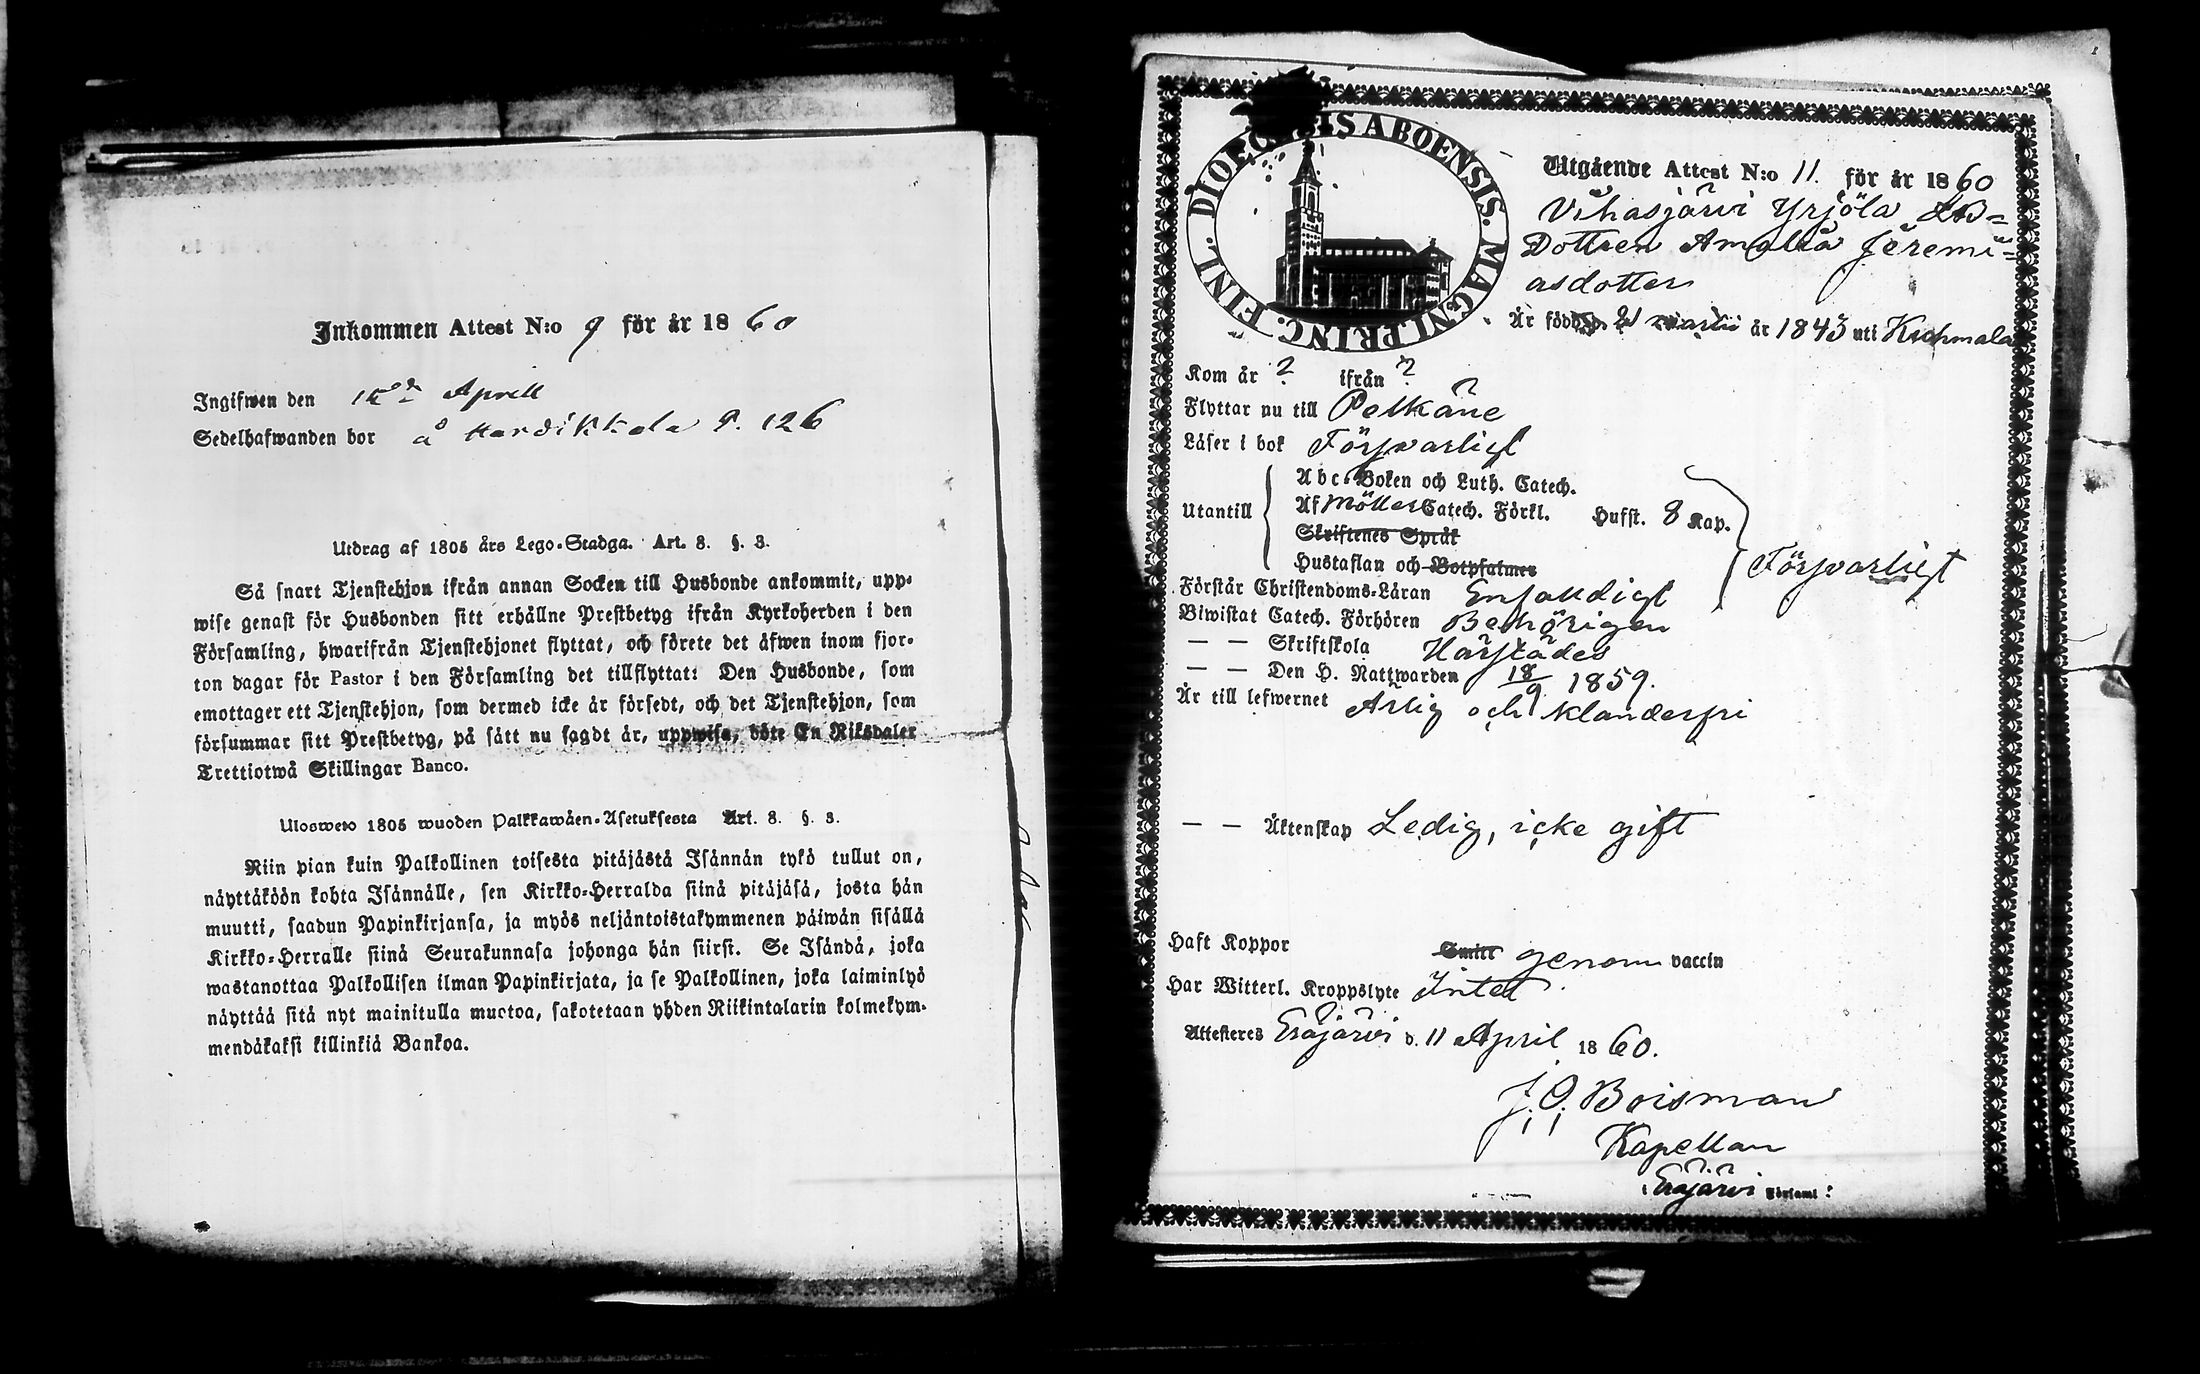 Inkommen Attest N:o 9 för år 1860
Ingifwen den Aprill
Sedelhafwanden bor å Hardikkala P. 126
Utdrag af 1805 års Lego-Stadga. Art. 8. §. 3.
Så snart Tjenstehjon ifrån annan Socken till Husbonde ankommit, upp-
wise genast för Husbonden sitt erhållne Prestbetyg ifrån Kyrkoherden i den
Församling, hwarifrån Tjenstehjonet flyttat, och förete det äfwen inom fjor-
ton dagar för Pastor i den Församling det tillflyttat: Den Husbonde, som
emottager ett Tjenstehjon, som dermed icke är försedt, och det Tjenstehjon, som
försummar sitt Prestbetyg, på sätt nu sagdt är, uppwisa, böte En Riksdaler
Trettiotwå Skillingar Banco.
Ulosweto 1805 wuoden Palkkawäen-Asetuksesta Art. 8. §. 3.
Niin pian kuin Palkollinen toisesta pitäjästä Isännän tykö tullut on,
näyttäköön kohta Isännälle, sen Kirkko-Herralda siinä pitäjäsä, josta hän
muutti, saadun Papinkirjansa, ja myös neljäntoistakymmenen päiwän sisällä
Kirkko-Herralle siinä Seurakunnasa johonga hän siirsi. Se Isändä, joka
wastanottaa Palkollisen ilman Papinkirjata, ja se Palkollinen, joka laiminlyö
näyttää sitä nyt mainitulla muotoa, sakotetaan yhden Riikintalarin kolmekym-
mendäkaksi killinkiä Bankoa.
FINL. DIOECESIS ABOENSIS. MAGNI PRINC.
Utgående Attest N:o 11. för år 1860
Vihasjärvi Yrjölä
Dottren Amalia Jeremi=
asdotter
Är född 21 martii år 1843 uti Kuhmala
Kom år ? ifrån ?
Flyttar nu till Pelkäne
Läser i bok Försvarligt
Utantill
Abc-Boken och Luth. Catech.
Af Möllers Catech. Förkl. Hufst. 8 Kap.
Skriftenes Språk
Hustaflan och Botpsalmer
Försvarligt
Förstår Christendoms-Läran Enfaldigt
Biwistat Catech. Förhören Behörigen
— — Skriftskola Härstädes
— — Den H. Nattwarden 18/9 1859.
Är till lefwernet Ärlig och klanderfri
— — Äktenskap Ledig, icke gift
Haft Koppor Smitt genom vaccin
Har Witterl. Kroppslyte Intet
Attesteres Eräjärvi d. 11 April 1860.
J. O. Boisman
Kapellan
i Eräjärvi Församl: